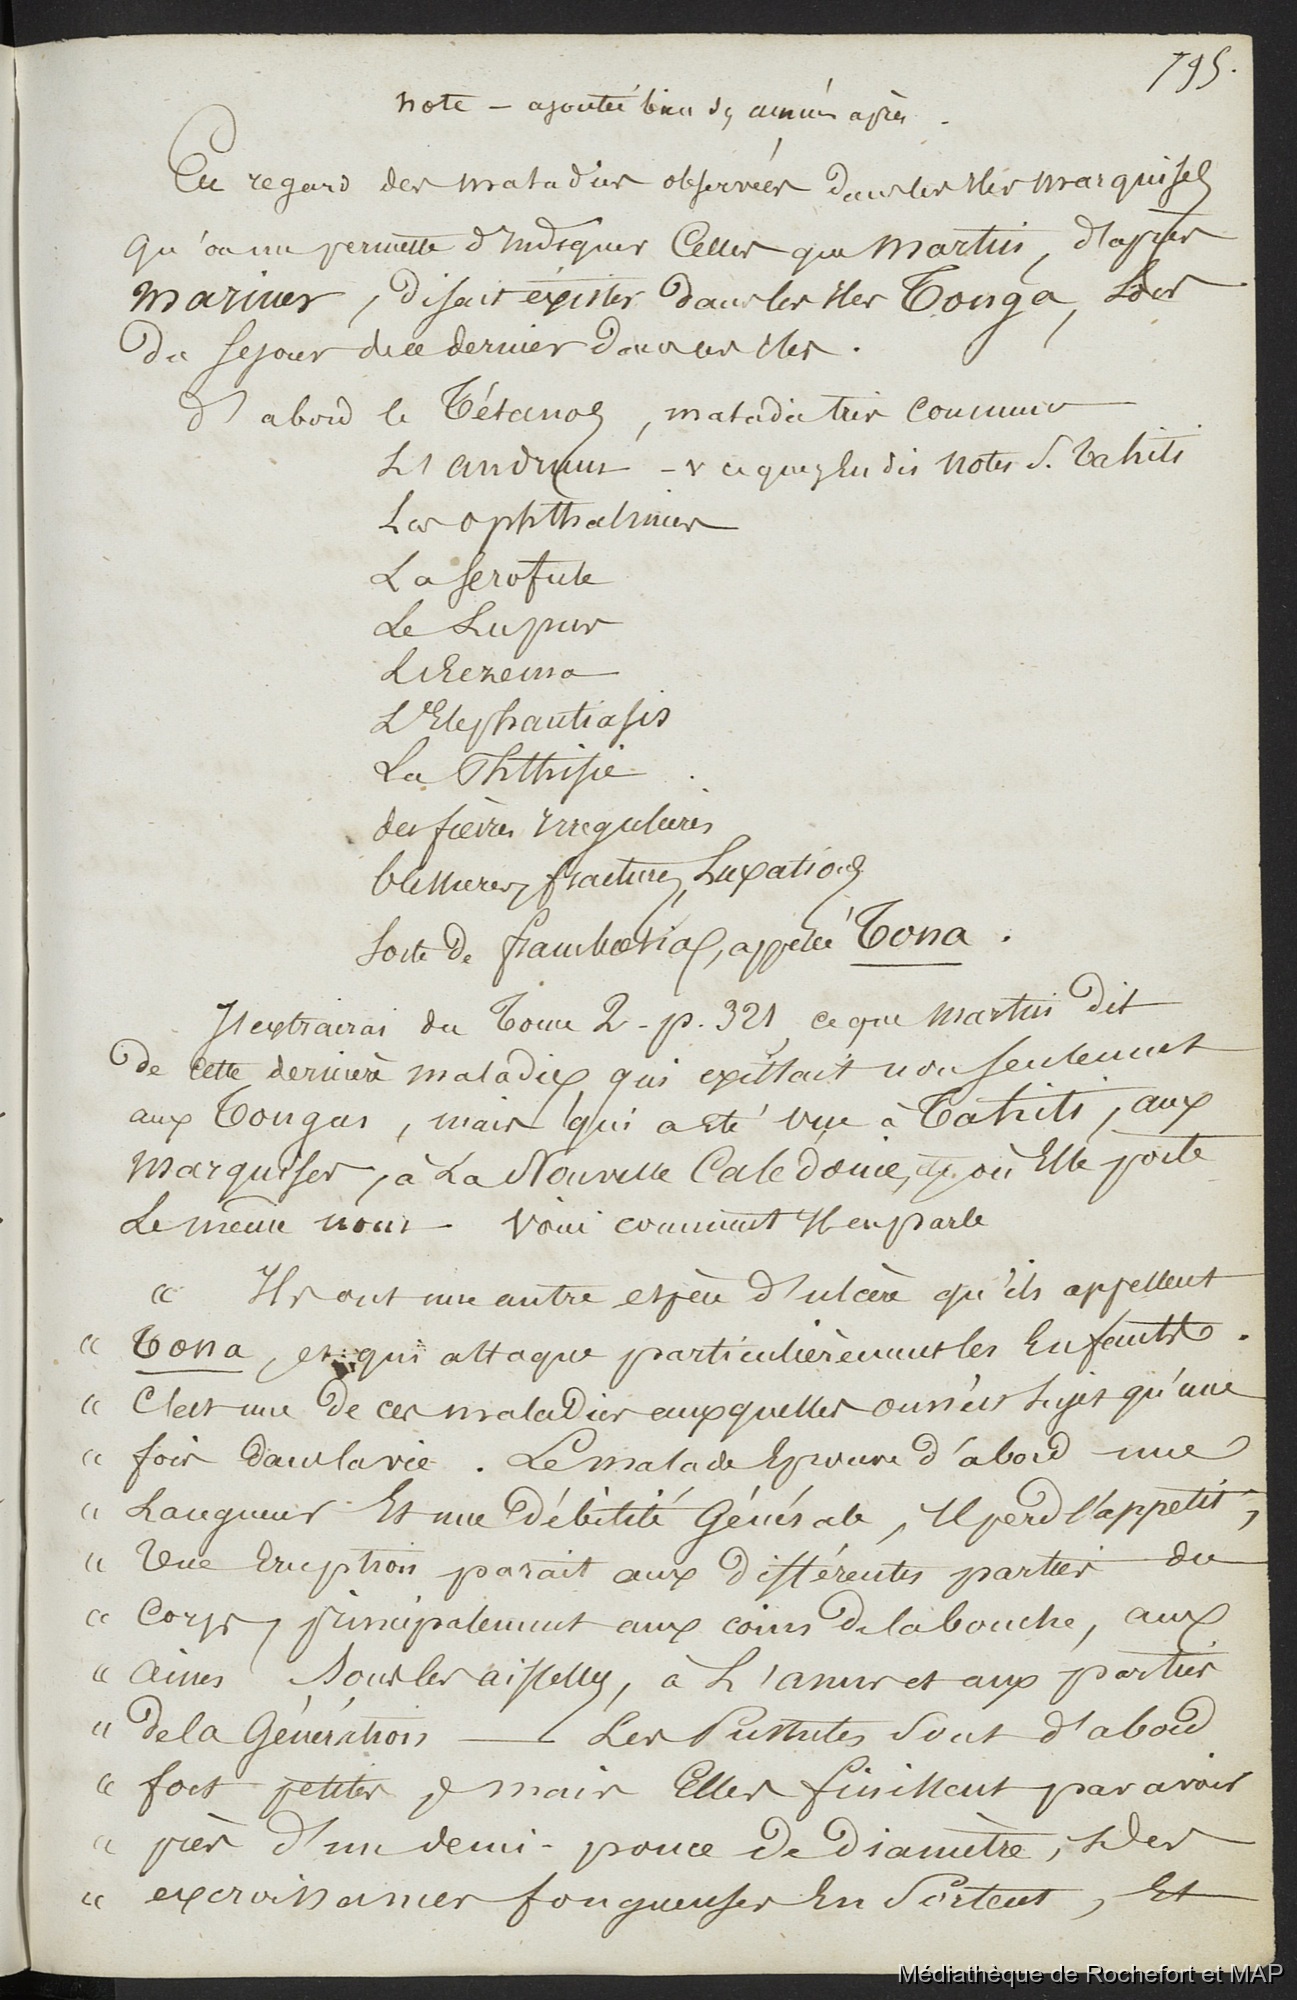 795.
note – ajoutée bien des années après.
En regard des maladies observées dans les Iles marquises
qu'on me permette d'Indiquer Celles que Martin, d'après
Mariner, disait éxister dans les Iles Tonga, Lors
Du Sejour de ce dernier dans ces Iles.
d'abord le Tétanos, maladie très commune
L'andrum – v ce que j'en dis notes s. Tahiti
Les ophthalmies
La scrofule
Le Lupus
L'Eczema
L'Elephantiasis
La Phthisie
des fièvres Irregulières
blessures, fractures, Luxations
Sorte de framboesia, appelée Tona.
J'extrairai du Tome 2 - p. 321 ce que Martin dit
de cette dernière maladie qui existait non seulement
aux Tongas, mais qui a été vue à Tahiti, aux
Marquises, à La Nouvelle Caledonie, où Elle porte
Le même nom – Voici comment Il en parle
« Ils ont une autre espèce d'ulcère qu'ils appellent
« Tona, et qui attaque particulièrement les Enfants.
« C'est une de ces maladies auxquelles on n'est sujet qu'une
« fois dans la vie. Le malade Eprouve d'abord une
« Langueur Et une Débilité Générale, Il perd l'appetit,
« Une Eruption parait aux différentes parties du
« Corps, principalement aux coins de la bouche, aux
« aines Sous les aisselles, à L'anus et aux parties
« de la Génération — Les Pustules Sont d'abord
« fort petites, mais Elles finissent par avoir
« près d'un demi-pouce de Diamètre, des
« excroissances fongueuses En Sortent, Et
Médiathèque de Rochefort et MAP